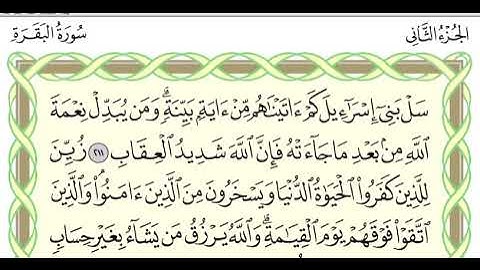 الجُزْءُ الثَّانِي سُورَةُ البَقَرَةِ
سَلْ بَنِىٓ إِسْرَٰٓءِيلَ كَمْ ءَاتَيْنَٰهُم مِّنْ ءَايَةٍۭ بَيِّنَةٍۗ وَمَن يُبَدِّلْ نِعْمَةَ
ٱللَّهِ مِنۢ بَعْدِ مَا جَآءَتْهُ فَإِنَّ ٱللَّهَ شَدِيدُ ٱلْعِقَابِ ٢١١ زُيِّنَ
لِلَّذِينَ كَفَرُوا۟ ٱلْحَيَوٰةُ ٱلدُّنْيَا وَيَسْخَرُونَ مِنَ ٱلَّذِينَ ءَامَنُوا۟ۘ وَٱلَّذِينَ
ٱتَّقَوْا۟ فَوْقَهُمْ يَوْمَ ٱلْقِيَٰمَةِۗ وَٱللَّهُ يَرْزُقُ مَن يَشَآءُ بِغَيْرِ حِسَابٍ